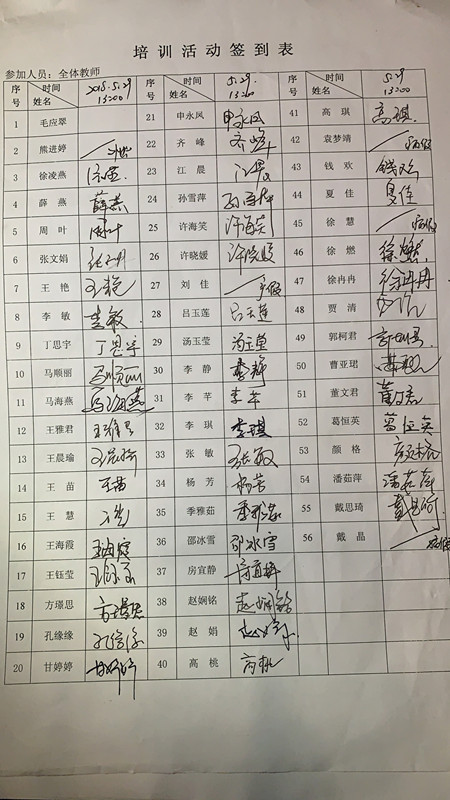 培训活动签到表
参加人员：全体教师
序号 时间 姓名 2018.5.29 13:00 序号 时间 姓名 5.29 13:00 序号 时间 姓名 5.29 13:00
1 毛应翠 21 申永凤 申永凤 41 高琪 高琪
2 熊进婷 22 齐峰 齐峰 42 袁梦靖
3 徐凌燕 23 江晨 江晨 43 钱欢 钱欢
4 薛燕 薛燕 24 孙雪萍 孙雪萍 44 夏佳 夏佳
5 周叶 周叶 25 许海笑 许海笑 45 徐慧
6 张文娟 张文娟 26 许晓媛 许晓媛 46 徐燃 徐燃
7 王艳 王艳 27 刘佳 47 徐冉冉 徐冉冉
8 李敏 李敏 28 吕玉莲 吕玉莲 48 贾清
9 丁思宇 丁思宇 29 汤玉莹 汤玉莹 49 郭柯君 郭柯君
10 马顺丽 马顺丽 30 李静 李静 50 曹亚珺 曹亚珺
11 马海燕 马海燕 31 李芊 李芊 51 董文君 董文君
12 王雅君 王雅君 32 李琪 李琪 52 葛恒英 葛恒英
13 王晨瑜 王晨瑜 33 张敏 张敏 53 颜格 颜格
14 王苗 王苗 34 杨芳 杨芳 54 潘茹萍 潘茹萍
15 王慧 王慧 35 季雅茹 季雅茹 55 戴思琦 戴思琦
16 王海霞 王海霞 36 邵冰雪 邵冰雪 56 戴晶
17 王钰莹 王钰莹 37 房宜静 房宜静
18 方璟思 方璟思 38 赵娴铭 赵娴铭
19 孔缘缘 孔缘缘 39 赵娟 赵娟
20 甘婷婷 甘婷婷 40 高桃 高桃